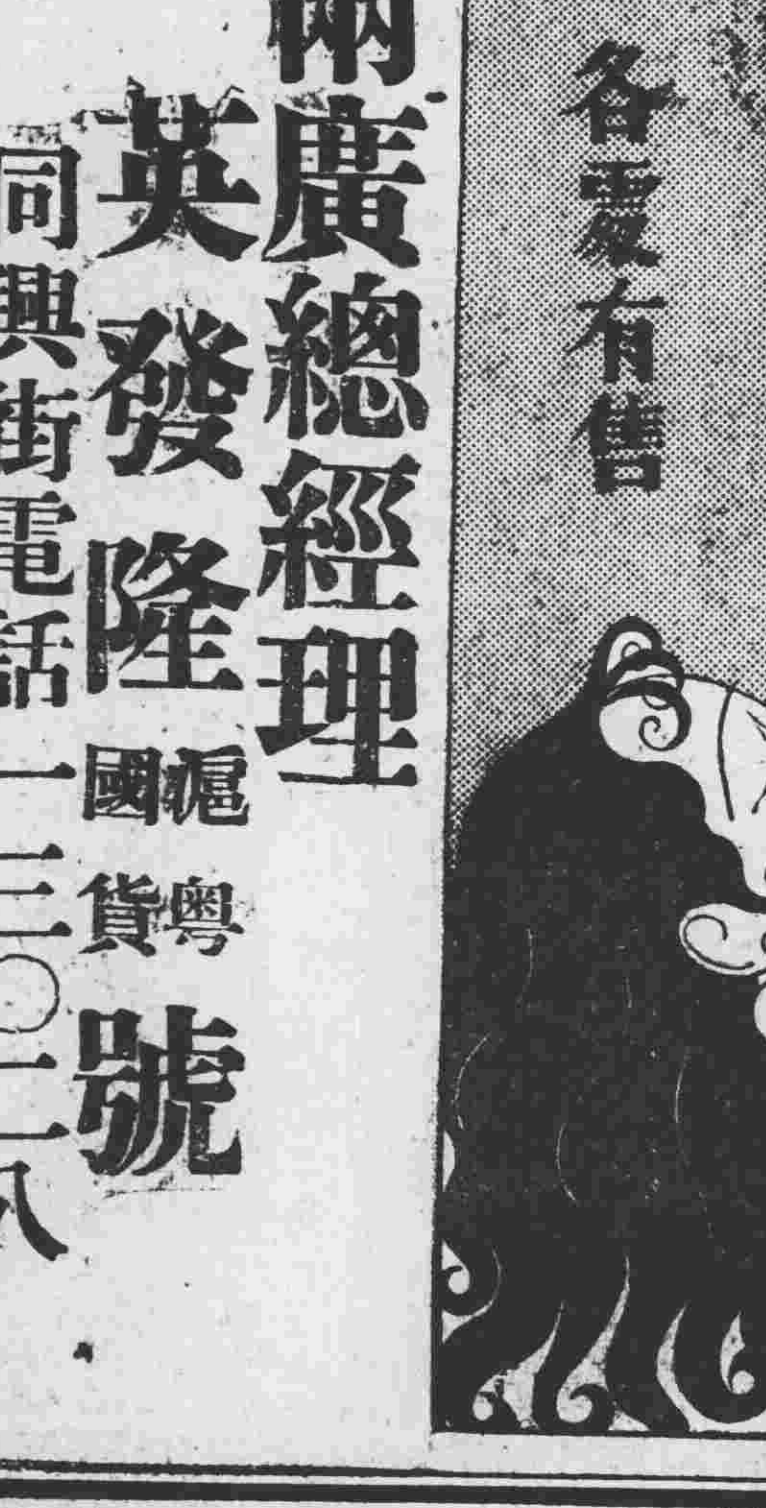 各處有售
兩廣總經理
英發隆滬粤國貨號
同興街電話一三〇二八